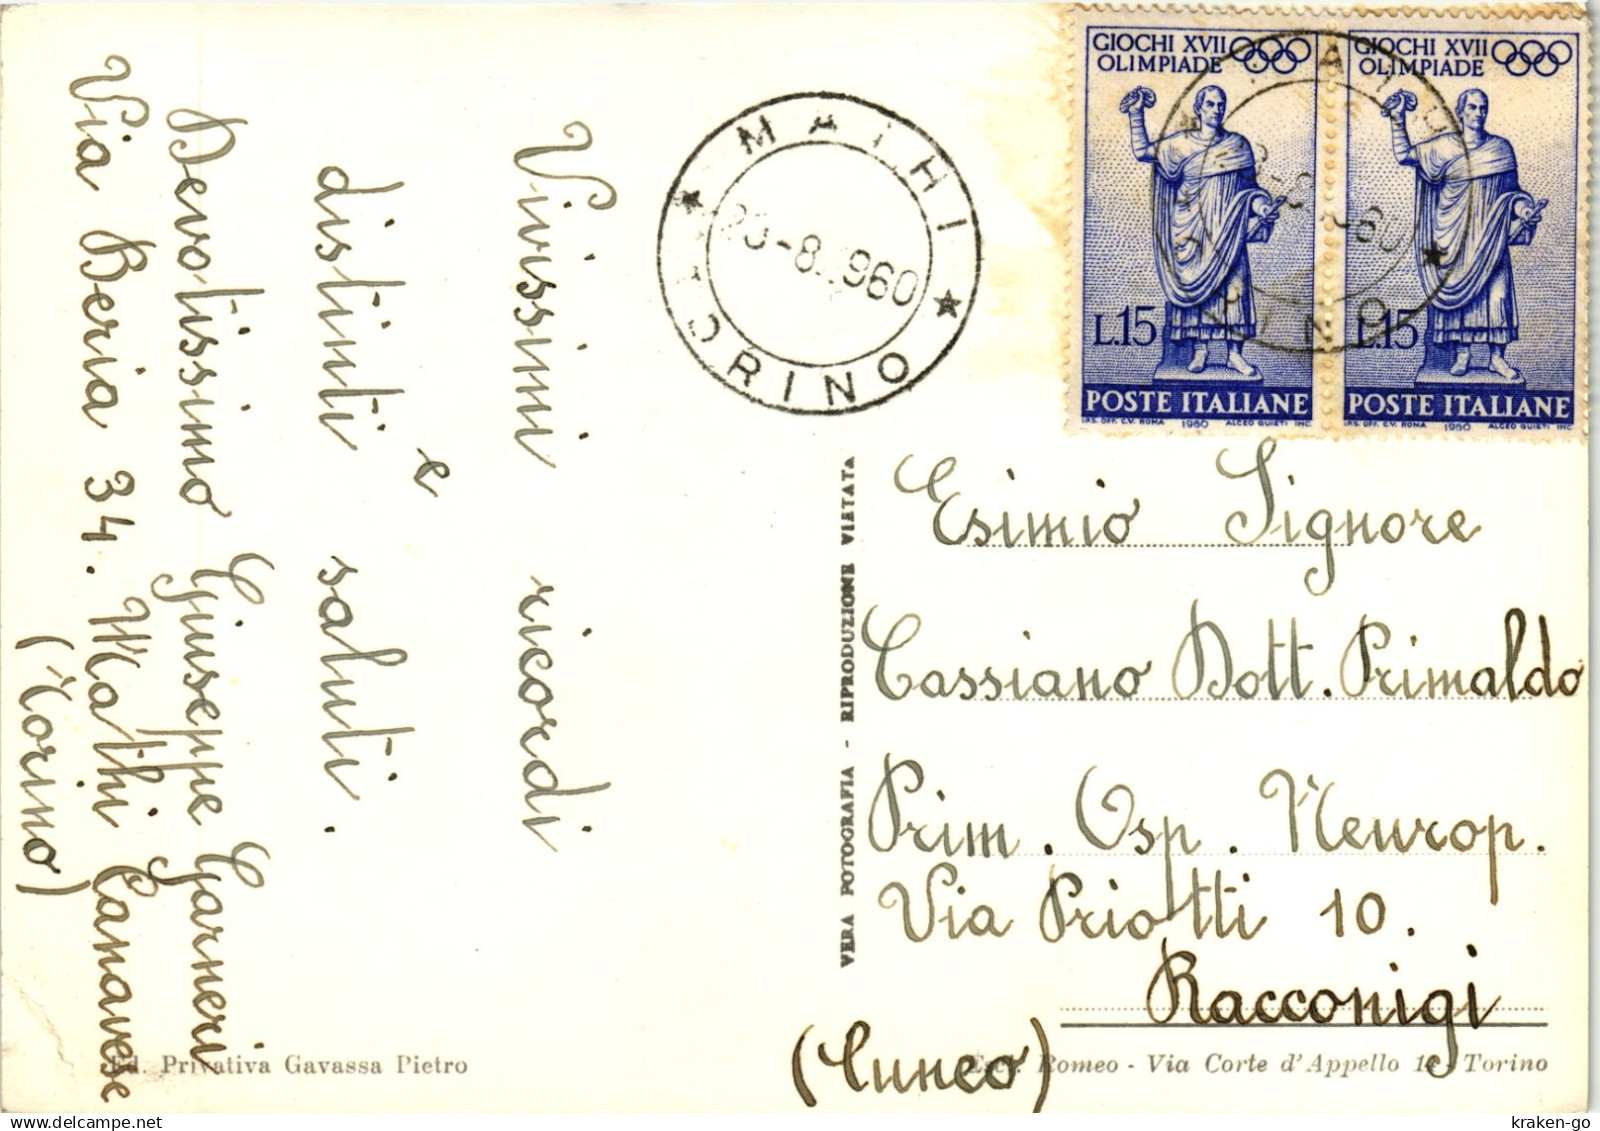 Vivissimi ricordi
distinti e saluti.
Devotissimo Giuseppe Garneri
Via Beria 34. Mathi Canavese
(Torino)
Ed. Privativa Gavassa Pietro
MATHI
20-8.1960
TORINO
VERA FOTOGRAFIA - RIPRODUZIONE VIETATA
GIOCHI XVII
OLIMPIADE
L.15
POSTE ITALIANE
I.P.S. OFF. C.V. ROMA 1960 ALCEO QUIETI INC.
GIOCHI XVII
OLIMPIADE
L.15
POSTE ITALIANE
I.P.S. OFF. C.V. ROMA 1960 ALCEO QUIETI INC.
Esimio Signore
Cassiano Dott. Primaldo
Prim. Osp. Neurop.
Via Priotti 10.
Racconigi
(Cuneo)
Romeo - Via Corte d'Appello 14 - Torino
kraken-go